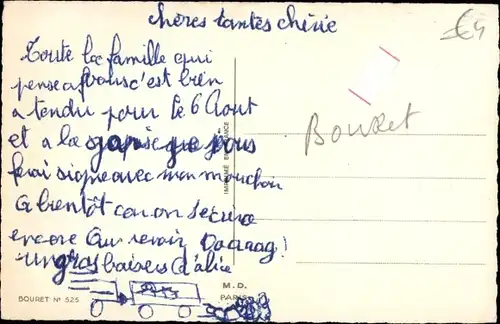 chères tantes chérie
€4
Toute la famille qui
pense a vous c'est bien
a tendu pour le 6 Aout
et a la gare que je vous
ferai signe avec mon mouchoir
a bientôt con on s'ecrive
encore Au revoir
un gros baisers d'alice
Bouret
IMPRIMÉ EN FRANCE
M. D.
PARIS
BOURET N° 525